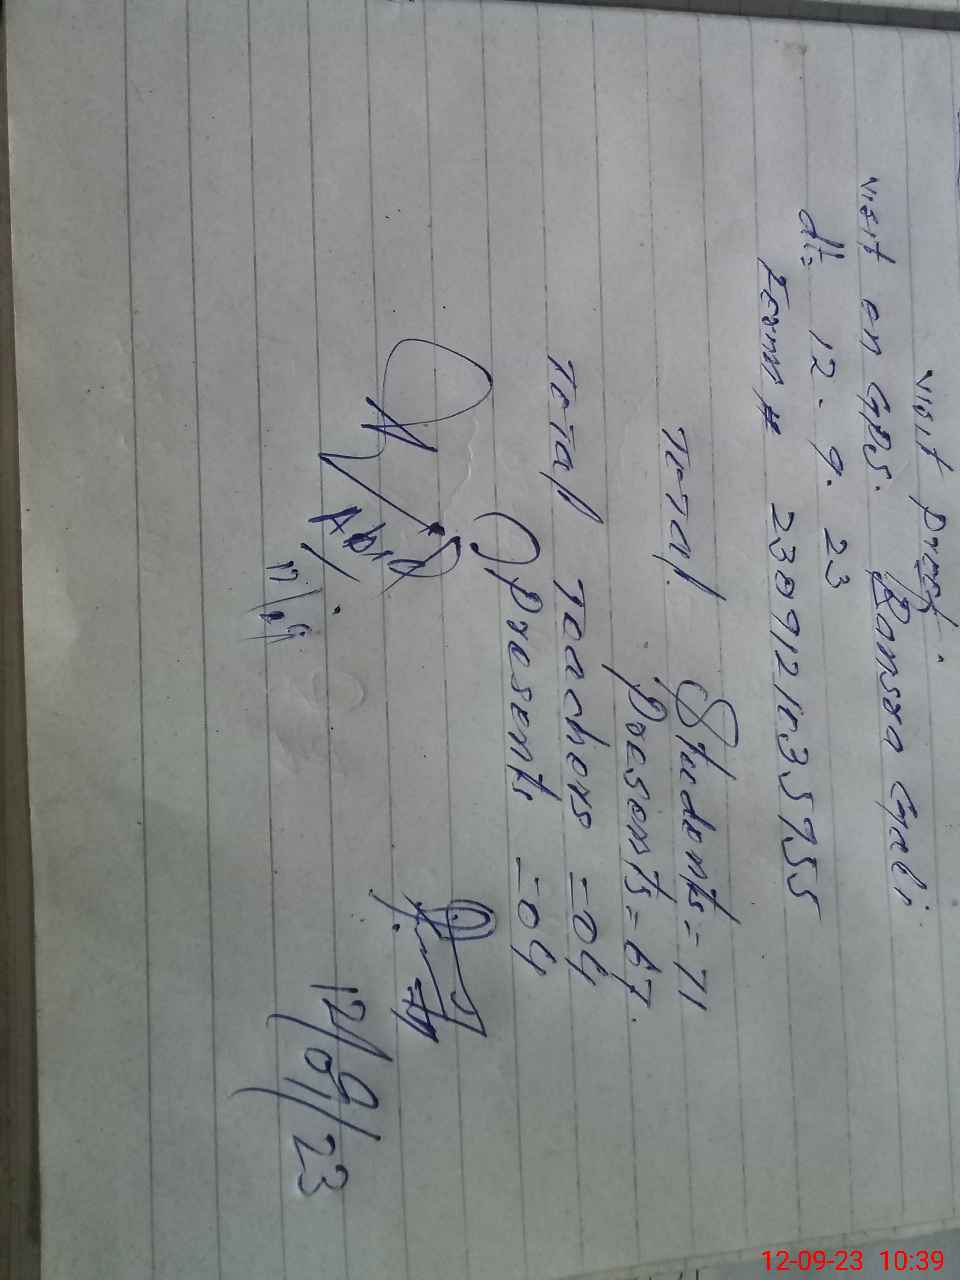 visit proof.
visit on GPS. Ramsra Gali
dt: 12. 9. 23
Form # 2309121035755
Total Students = 71
Presents = 67.
Total Teachers = 04
Presents = 04
Abid
12/09/23
12-09-23 10:39